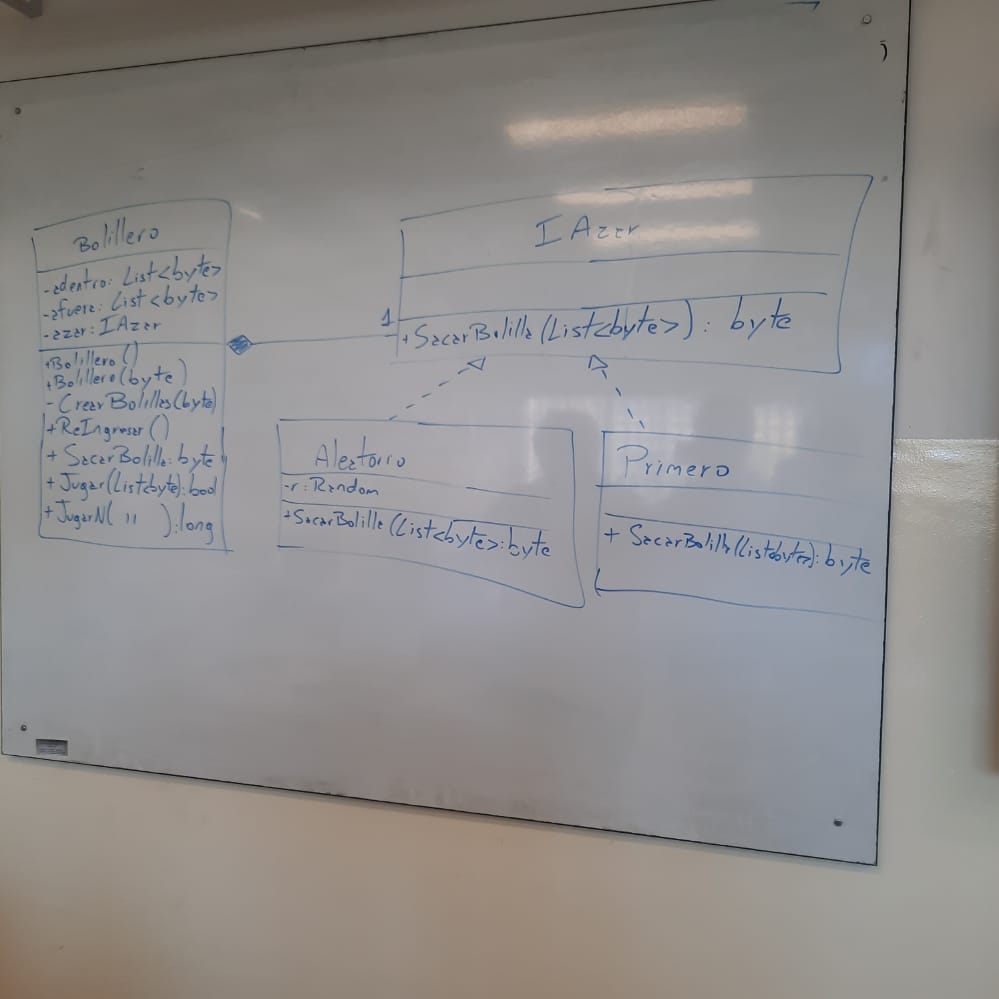 Bolillero
-adentro: List<byte>
-afuera: List<byte>
-azar: IAzar
+Bolillero()
+Bolillero(byte)
- CrearBolillas(byte)
+ReIngresar()
+ SacarBolilla: byte
+ Jugar(List<byte): bool
+ JugarN( " ): long
1
IAzar
+SacarBolilla(List<byte>): byte
Aleatorio
-r: Random
+SacarBolilla(List<byte>: byte
Primero
+ SacarBolilla(List<byte>): byte